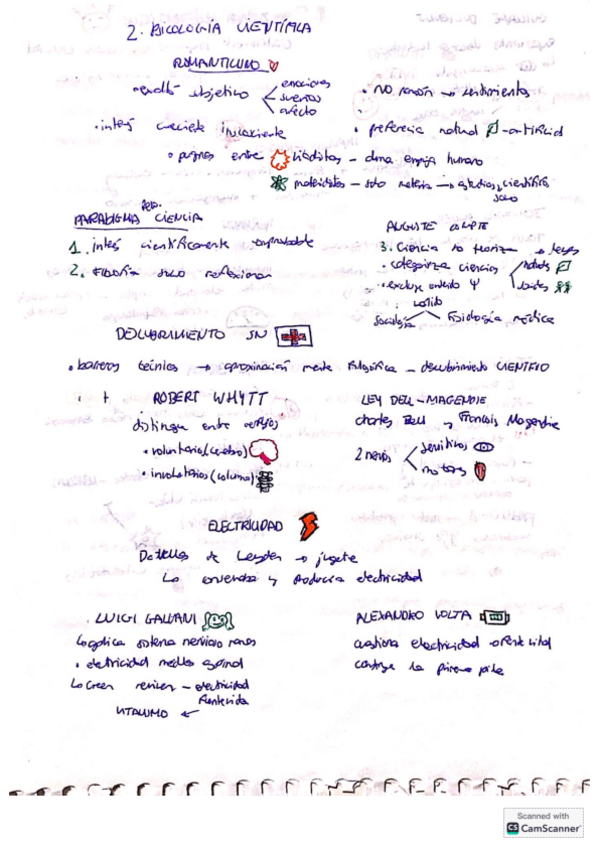 2. PSICOLOGÍA CIENTÍFICA
ROMANTICISMO
objetivo
emociones
sueños
afecto
· NO razón → sentimientos
· interés creciente inconsciente
· preferencia natural - artificial
· pugnas entre vitalistas - alma energía humano
materialistas - solo materia → estudios científicos
solo
PARADIGMA CIENCIA
1. interés científicamente comprobable
2. Filosofía solo reflexionar
AUGUSTE COMTE
3. Ciencia no teoriza → leyes
· categoriza ciencias
· excluye
sociología
fisiología médica
DESCUBRIMIENTO SN
· barreras técnicas → aproximación mente filosófica - descubrimiento CIENTÍFICO
· + ROBERT WHYTT
distingue entre reflejos
· voluntarios (cerebro)
· involuntarios (columna)
LEY BELL-MAGENDIE
Charles Bell → Francois Magendie
2 nervios
sensitivos
motores
ELECTRICIDAD
Botellas de Leyden → juguete
y producía electricidad
· LUIGI GALVANI
aplica sistema nervioso ranas
· electricidad médula espinal
creen reviven - electricidad
VITALISMO ←
ALEXANDRO VOLTA
cuestiona electricidad
construye la primera pila
Scanned with
CS CamScanner